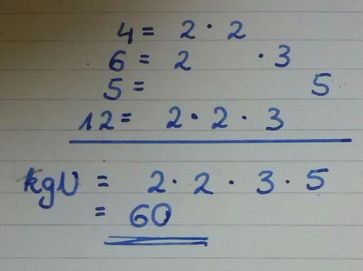 4 = 2 · 2
6 = 2 · 3
5 = 5
12 = 2 · 2 · 3
kgV = 2 · 2 · 3 · 5
= 60